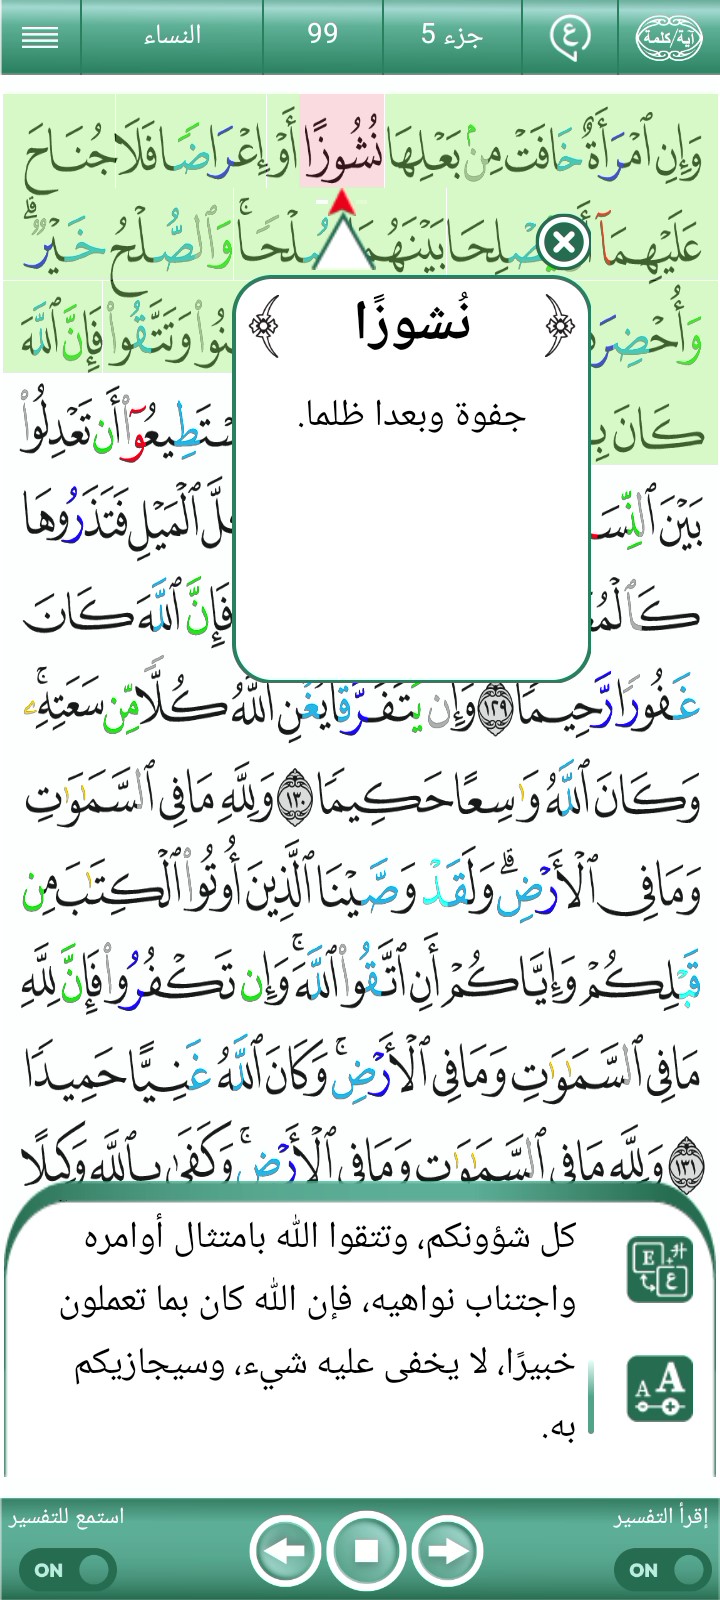 آية/كلمة
ع
جزء 5
99
النساء
وَإِنِ ٱمْرَأَةٌ خَافَتْ مِنۢ بَعْلِهَا نُشُوزًا أَوْ إِعْرَاضًا فَلَا جُنَاحَ
عَلَيْهِمَآ بَيْنَهُمَا صُلْحًاۚ وَٱلصُّلْحُ خَيْرٌۗ
نُشوزًا
جفوة وبعدا ظلما.
وَتَتَّقُوا۟ فَإِنَّ ٱللَّهَ
كَانَ
أَن تَعْدِلُوا۟
بَيْنَ ٱلْمَيْلِ فَتَذَرُوهَا
فَإِنَّ ٱللَّهَ كَانَ
غَفُورًا رَّحِيمًا ١٢٩ وَإِن يَتَفَرَّقَا يُغْنِ ٱللَّهُ كُلًّا مِّن سَعَتِهِۦۚ
وَكَانَ ٱللَّهُ وَٰسِعًا حَكِيمًا ١٣٠ وَلِلَّهِ مَا فِى ٱلسَّمَٰوَٰتِ
وَمَا فِى ٱلْأَرْضِۗ وَلَقَدْ وَصَّيْنَا ٱلَّذِينَ أُوتُوا۟ ٱلْكِتَٰبَ مِن
قَبْلِكُمْ وَإِيَّاكُمْ أَنِ ٱتَّقُوا۟ ٱللَّهَۚ وَإِن تَكْفُرُوا۟ فَإِنَّ لِلَّهِ
مَا فِى ٱلسَّمَٰوَٰتِ وَمَا فِى ٱلْأَرْضِۚ وَكَانَ ٱللَّهُ غَنِيًّا حَمِيدًا
١٣١ وَلِلَّهِ مَا فِى ٱلسَّمَٰوَٰتِ وَمَا فِى ٱلْأَرْضِۚ وَكَفَىٰ بِٱللَّهِ وَكِيلًا
كل شؤونكم، وتتقوا الله بامتثال أوامره
واجتناب نواهيه، فإن الله كان بما تعملون
خبيرًا، لا يخفى عليه شيء، وسيجازيكم
به.
إقرأ التفسير
استمع للتفسير
ON
ON